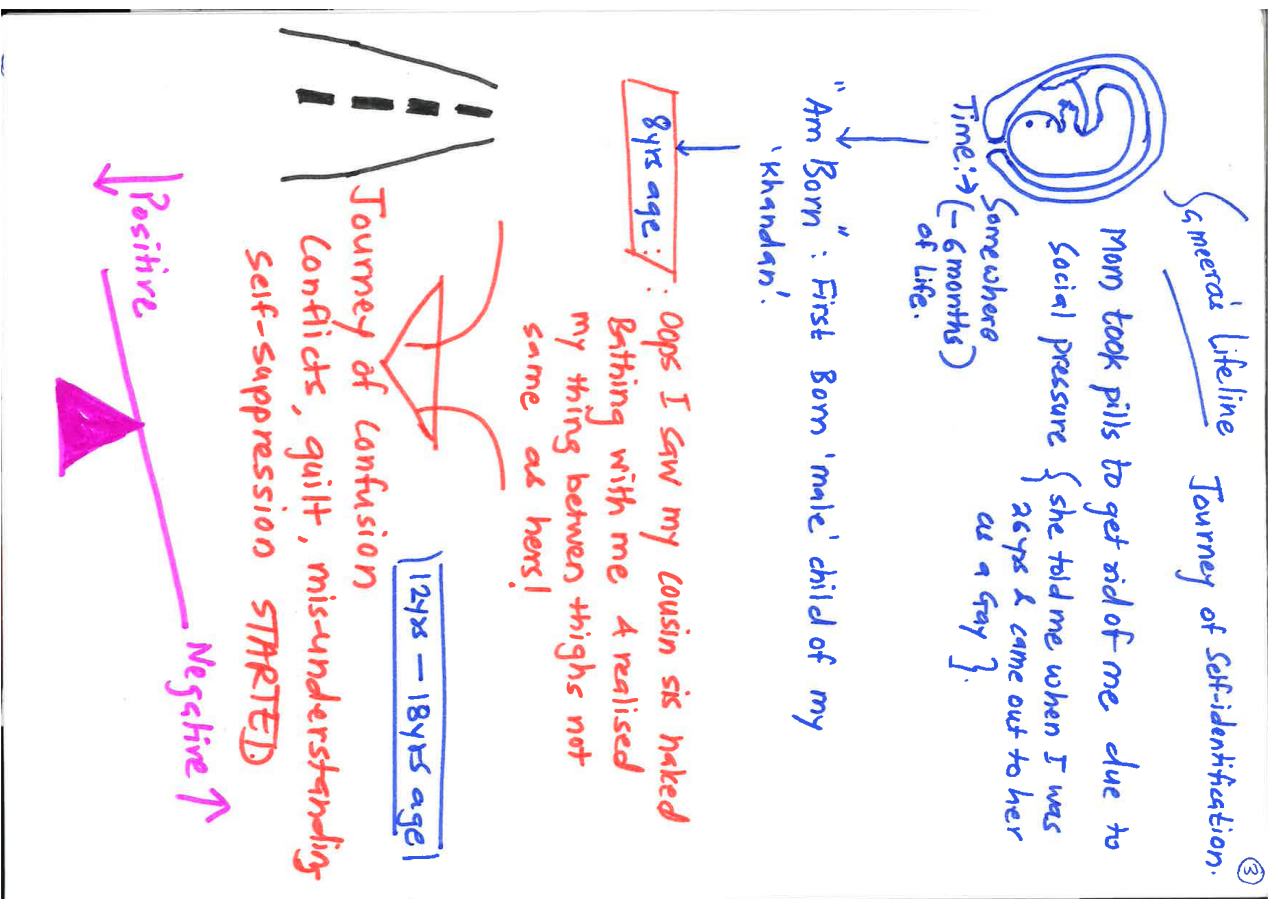 {Smeera's Lifeline
Journey of Self-identification.
③
Mom took pills to get rid of me due to
Social pressure { she told me when I was
26yrs & came out to her
as a Gay }.
Somewhere
Time:→ (-6months)
of life.
"Am Born": First Born 'male' child of my
'Khandan'.
8yrs age:
: Oops I saw my cousin sis naked
Bathing with me & realised
my thing betwen thighs not
same as hers!
12yrs - 18yrs age
Journey of Confusion
Conflicts, guilt, mis-understanding
self-suppression STARTED
↓Positive
Negative↑